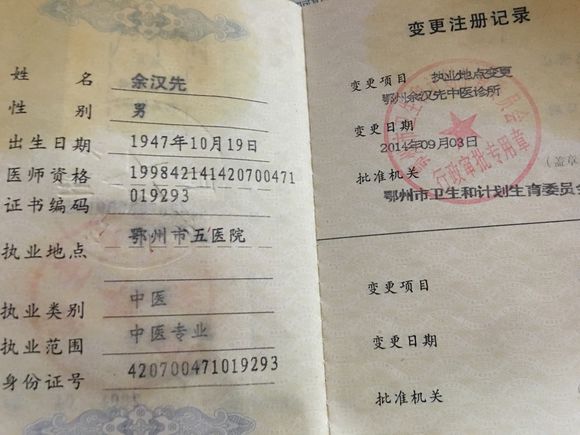 姓名 余汉先
性别 男
出生日期 1947年10月19日
医师资格 199842141420700471
证书编码 019293
执业地点 鄂州市五医院
执业类别 中医
执业范围 中医专业
身份证号 420700471019293
变更注册记录
变更项目 执业地点变更
鄂州余汉先中医诊所
变更日期
2014年09月03日
（盖章
批准机关
鄂州市卫生和计划生育委员会
行政审批专用章
变更项目
变更日期
批准机关